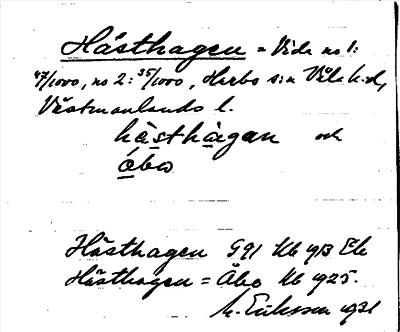 Hästhagen = Vida no 1:
47/1000, no 2: 35/1000, Harbo s:n Våla h:d,
Västmanlands l.
hästhagan och
åbo
Hästhagen G91 Kb 1913 Ek
Hästhagen = Åbo Kb 1925.
M. Eriksson 1931